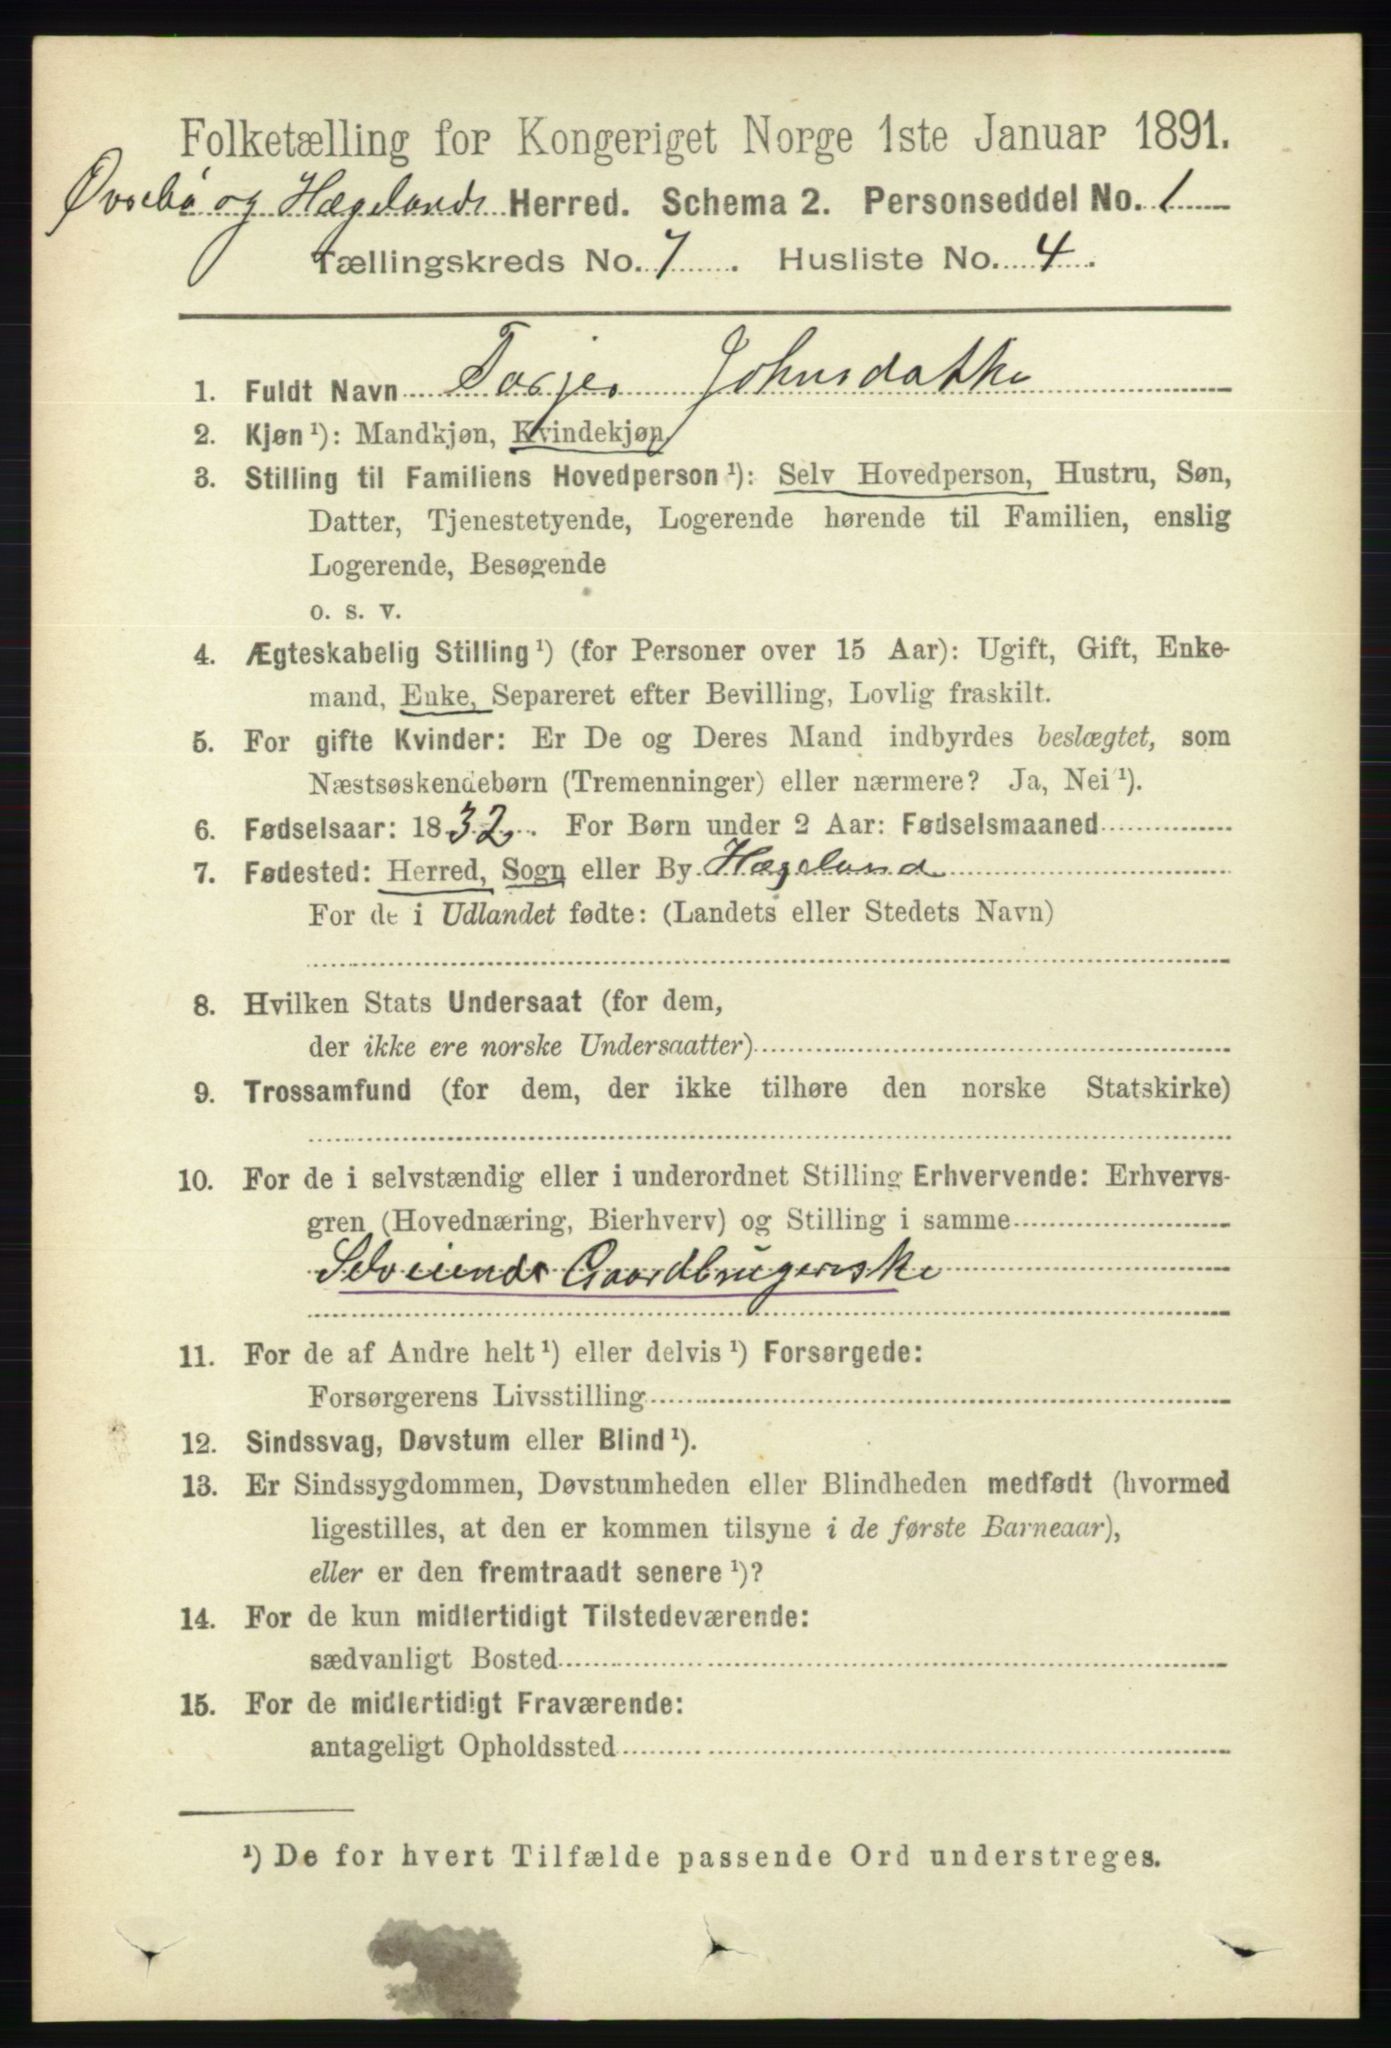 Folketælling for Kongeriget Norge 1ste Januar 1891.
Øvrebø og Hægelands Herred. Schema 2. Personseddel No. 1
Tællingskreds No. 7. Husliste No. 4.
1. Fuldt Navn Torjer Johnsdatter
2. Kjøn¹): Mandkjøn, Kvindekjøn
3. Stilling til Familiens Hovedperson¹): Selv Hovedperson, Hustru, Søn,
Datter, Tjenestetyende, Logerende hørende til Familien, enslig
Logerende, Besøgende
o. s. v.
4. Ægteskabelig Stilling¹) (for Personer over 15 Aar): Ugift, Gift, Enke-
mand, Enke, Separeret efter Bevilling, Lovlig fraskilt.
5. For gifte Kvinder: Er De og Deres Mand indbyrdes beslægtet, som
Næstsøskendebørn (Tremenninger) eller nærmere? Ja, Nei¹).
6. Fødselsaar: 1832. For Børn under 2 Aar: Fødselsmaaned
7. Fødested: Herred, Sogn eller By Hægeland
For de i Udlandet fødte: (Landets eller Stedets Navn)
8. Hvilken Stats Undersaat (for dem,
der ikke ere norske Undersaatter)
9. Trossamfund (for dem, der ikke tilhøre den norske Statskirke)
10. For de i selvstændig eller i underordnet Stilling Erhvervende: Erhvervs-
gren (Hovednæring, Bierhverv) og Stilling i samme
Selveiende Gaardbrugerske
11. For de af Andre helt¹) eller delvis¹) Forsørgede:
Forsørgerens Livsstilling
12. Sindssvag, Døvstum eller Blind¹).
13. Er Sindssygdommen, Døvstumheden eller Blindheden medfødt (hvormed
ligestilles, at den er kommen tilsyne i de første Barneaar),
eller er den fremtraadt senere¹)?
14. For de kun midlertidigt Tilstedeværende:
sædvanligt Bosted
15. For de midlertidigt Fraværende:
antageligt Opholdssted
¹) De for hvert Tilfælde passende Ord understreges.